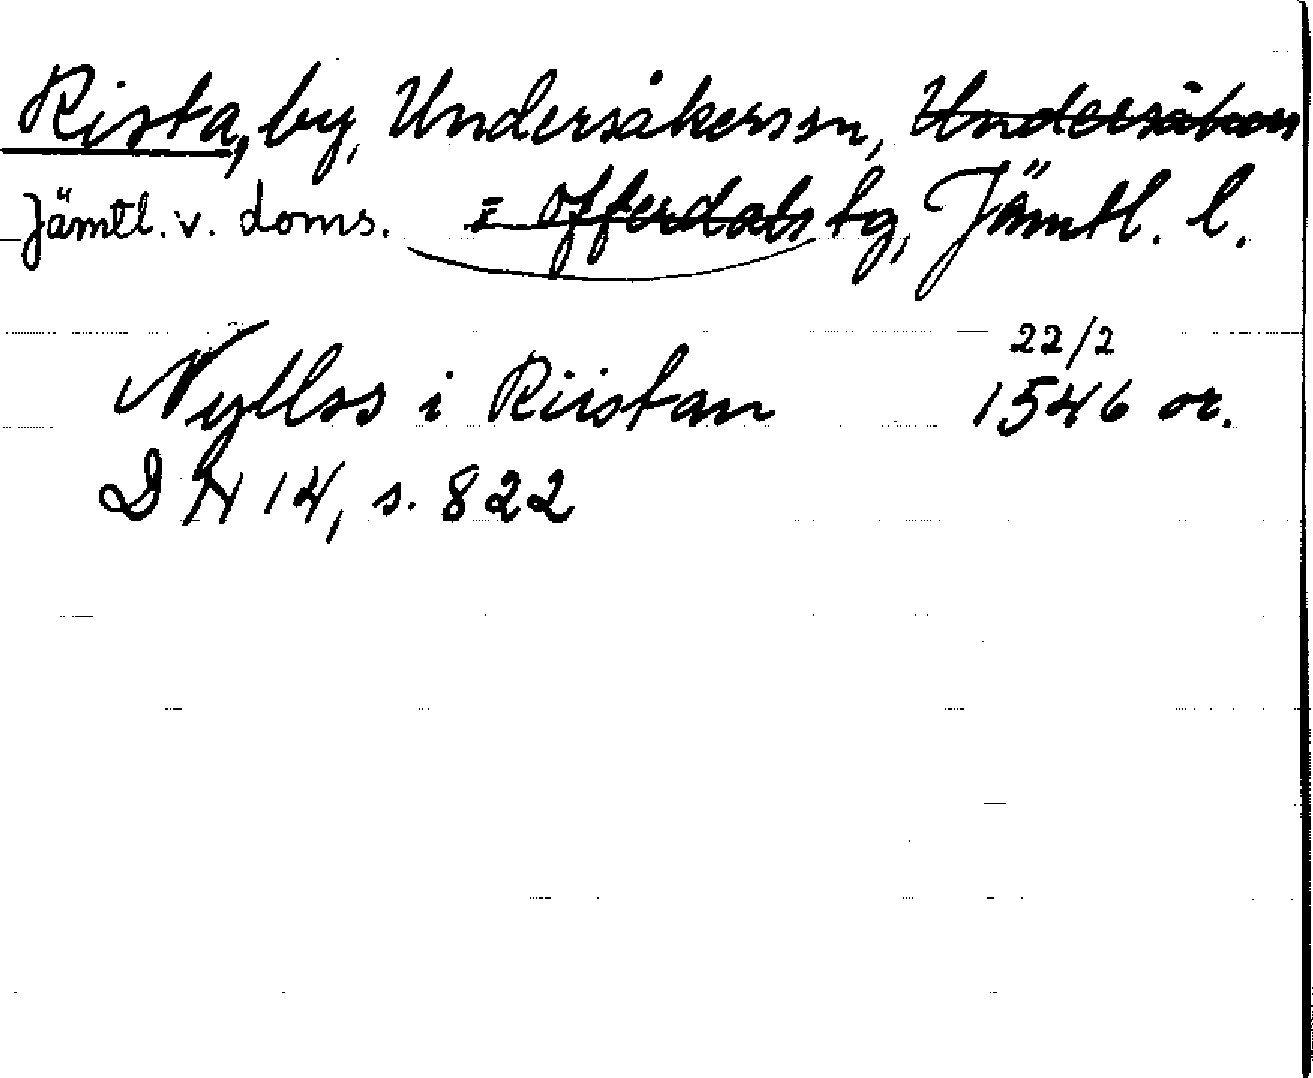 Rista, by, Undersåkers sn, Undersåkers
Jämtl. v. doms. = Offerdals tg, Jämtl. l.
22/2
Nyllss i Riistan 1546 or.
DN 14, s. 822